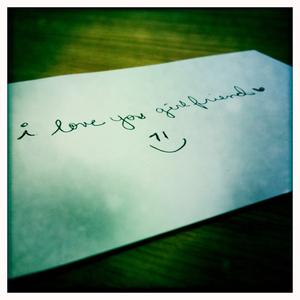 i love you girlfriend